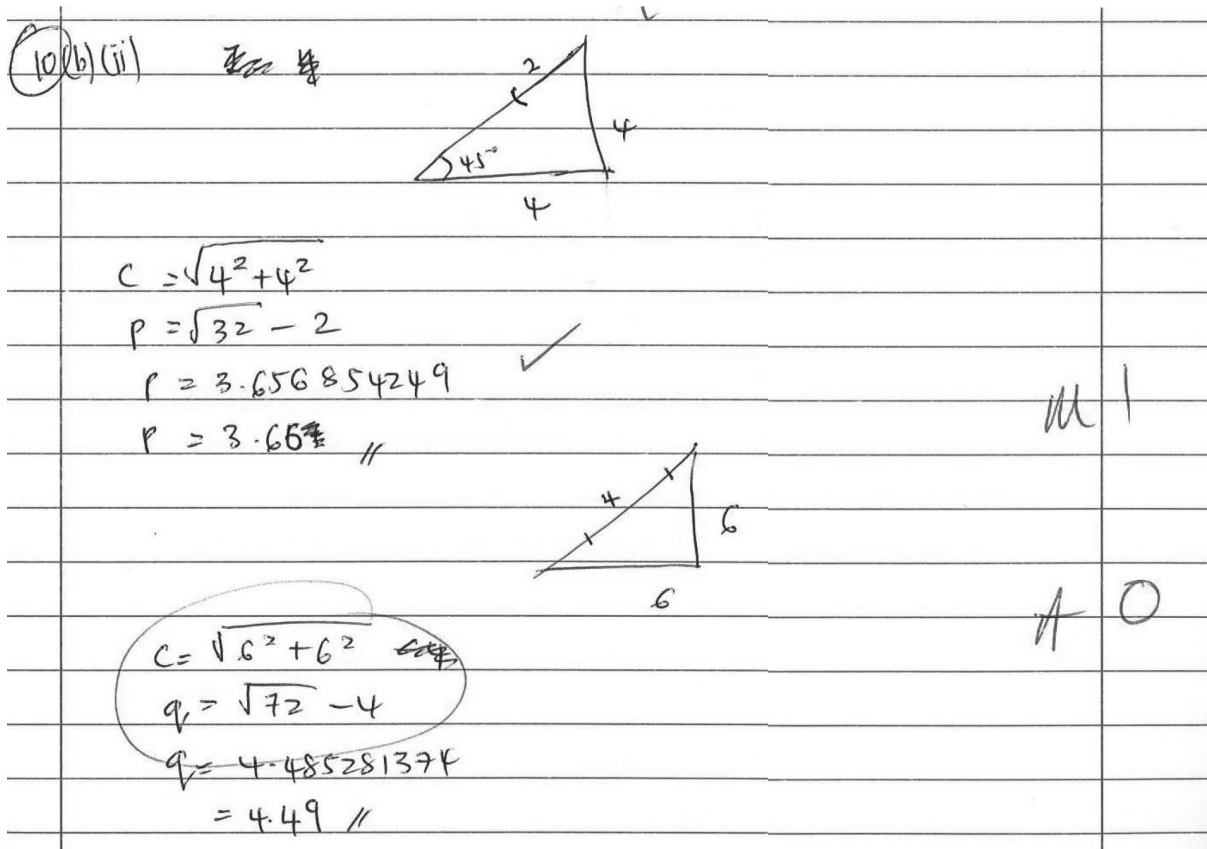 10(b)(ii)
2
4
45°
4
C = √4² + 4²
P = √32 - 2
P = 3.656854249
M 1
P = 3.66 //
4
6
6
A 0
C = √6² + 6²
q = √72 - 4
q = 4.485281374
= 4.49 //